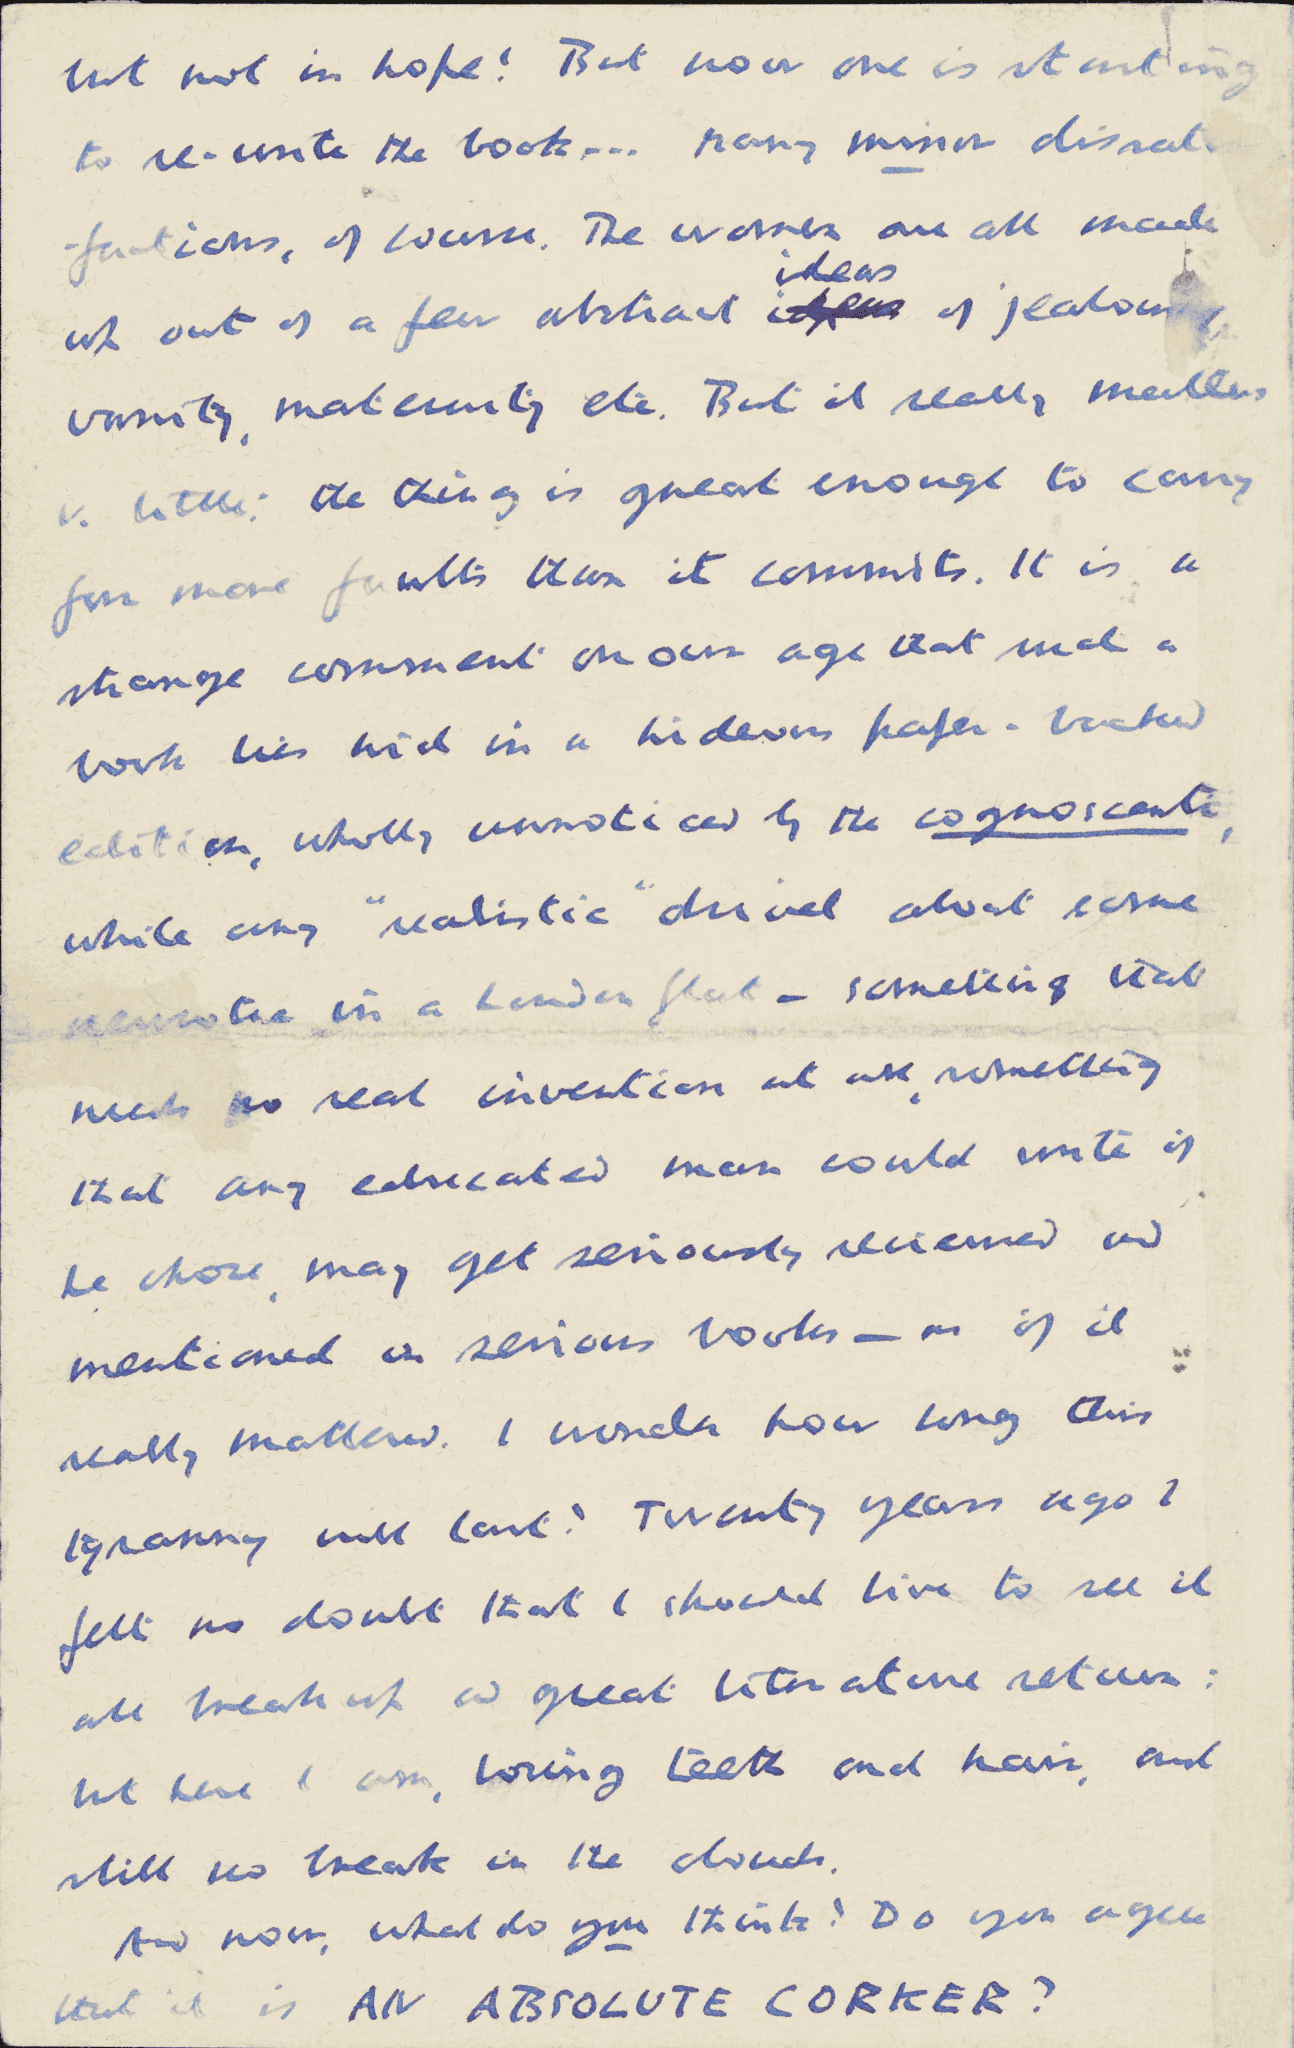 but not in hope! But now one is starting
to re-write the book... Many minor dissatis
-factions, of course. The women are all made
ideas
up out of a few abstract ideas of jealousy,
vanity, maternity etc. But it really matters
v. little: the thing is great enough to carry
far more faults than it commits. It is a
strange comment on our age that such a
book lies hid in a hideous paper-backed
edition, wholly unnoticed by the cognoscenti,
while any "realistic" drivel about some
neurotic in a London flat – something that
needs no real invention at all, something
that any educated man could write if
he chose, may get seriously reviewed and
mentioned in serious books – as if it
really mattered. I wonder how long this
tyranny will last? Twenty years ago I
felt no doubt that I should live to see it
all break up and great literature return:
but here I am, losing teeth and hair, and
still no break in the clouds.
And now, what do you think? Do you agree
that it is AN ABSOLUTE CORKER?